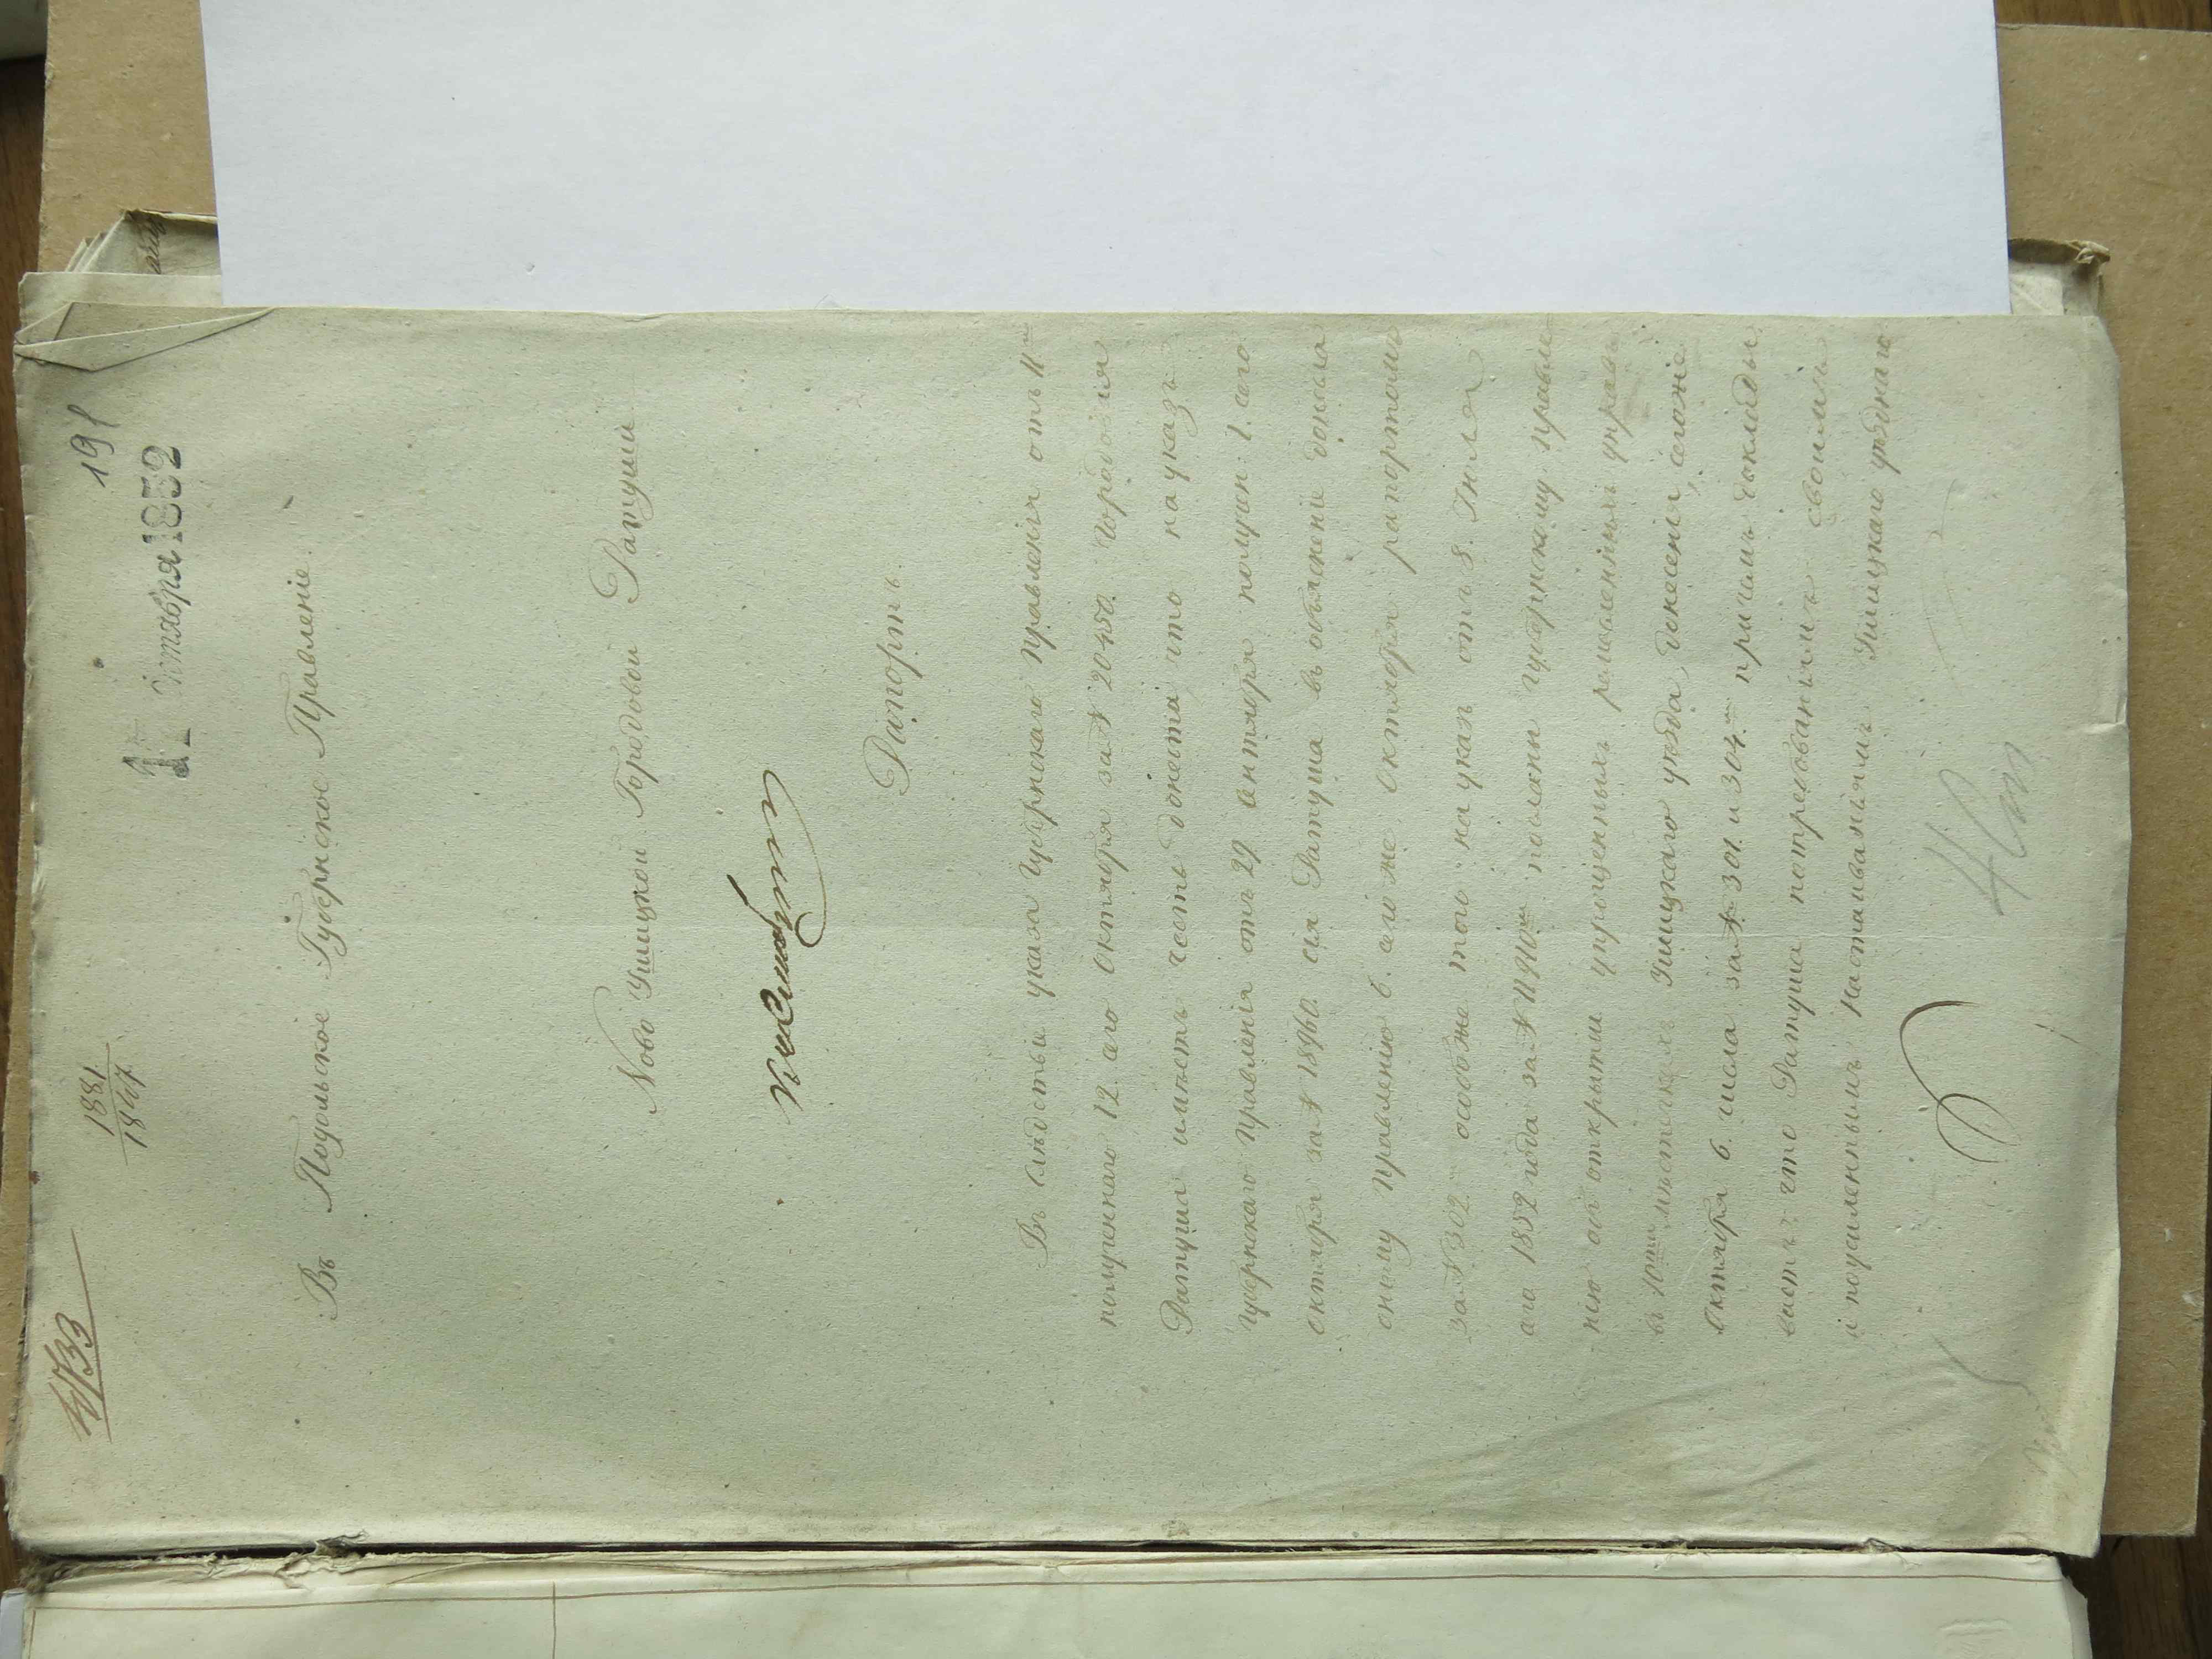 1881
1847
191
17 Октября 1852
Въ Подольское Губернское Правленіе.
Ново Ушицкой Городовой Ратуши
Рапортъ.
Въ слѣдствіи указа Губернскаго Правленія отъ 11го
полученнаго 12 сего Октября за № 20450. Городовая
Ратуша имѣетъ честь донести что на указъ
Губернскаго Правленія отъ 29 Сентября получен: 1. сего
Октября за № 18960. сія Ратуша въ объясненіе донесла
оному Правленію 6. сего же Октября рапортомъ
за № 302 особо же того на указъ отъ 8. Іюля
сего 1852 года за № 11910мъ посланы Губернскому Правле
нію объ открытіи упрощенныхъ ремесленныхъ управъ
въ 10ти мѣстечкахъ Ушицкаго уѣзда, донесенія, сегоже
Октября 6. числа за № 301. и 304.мъ причемъ
что Ратуша своимъ
и настаиваніямъ Ушицкаго уѣзднаго